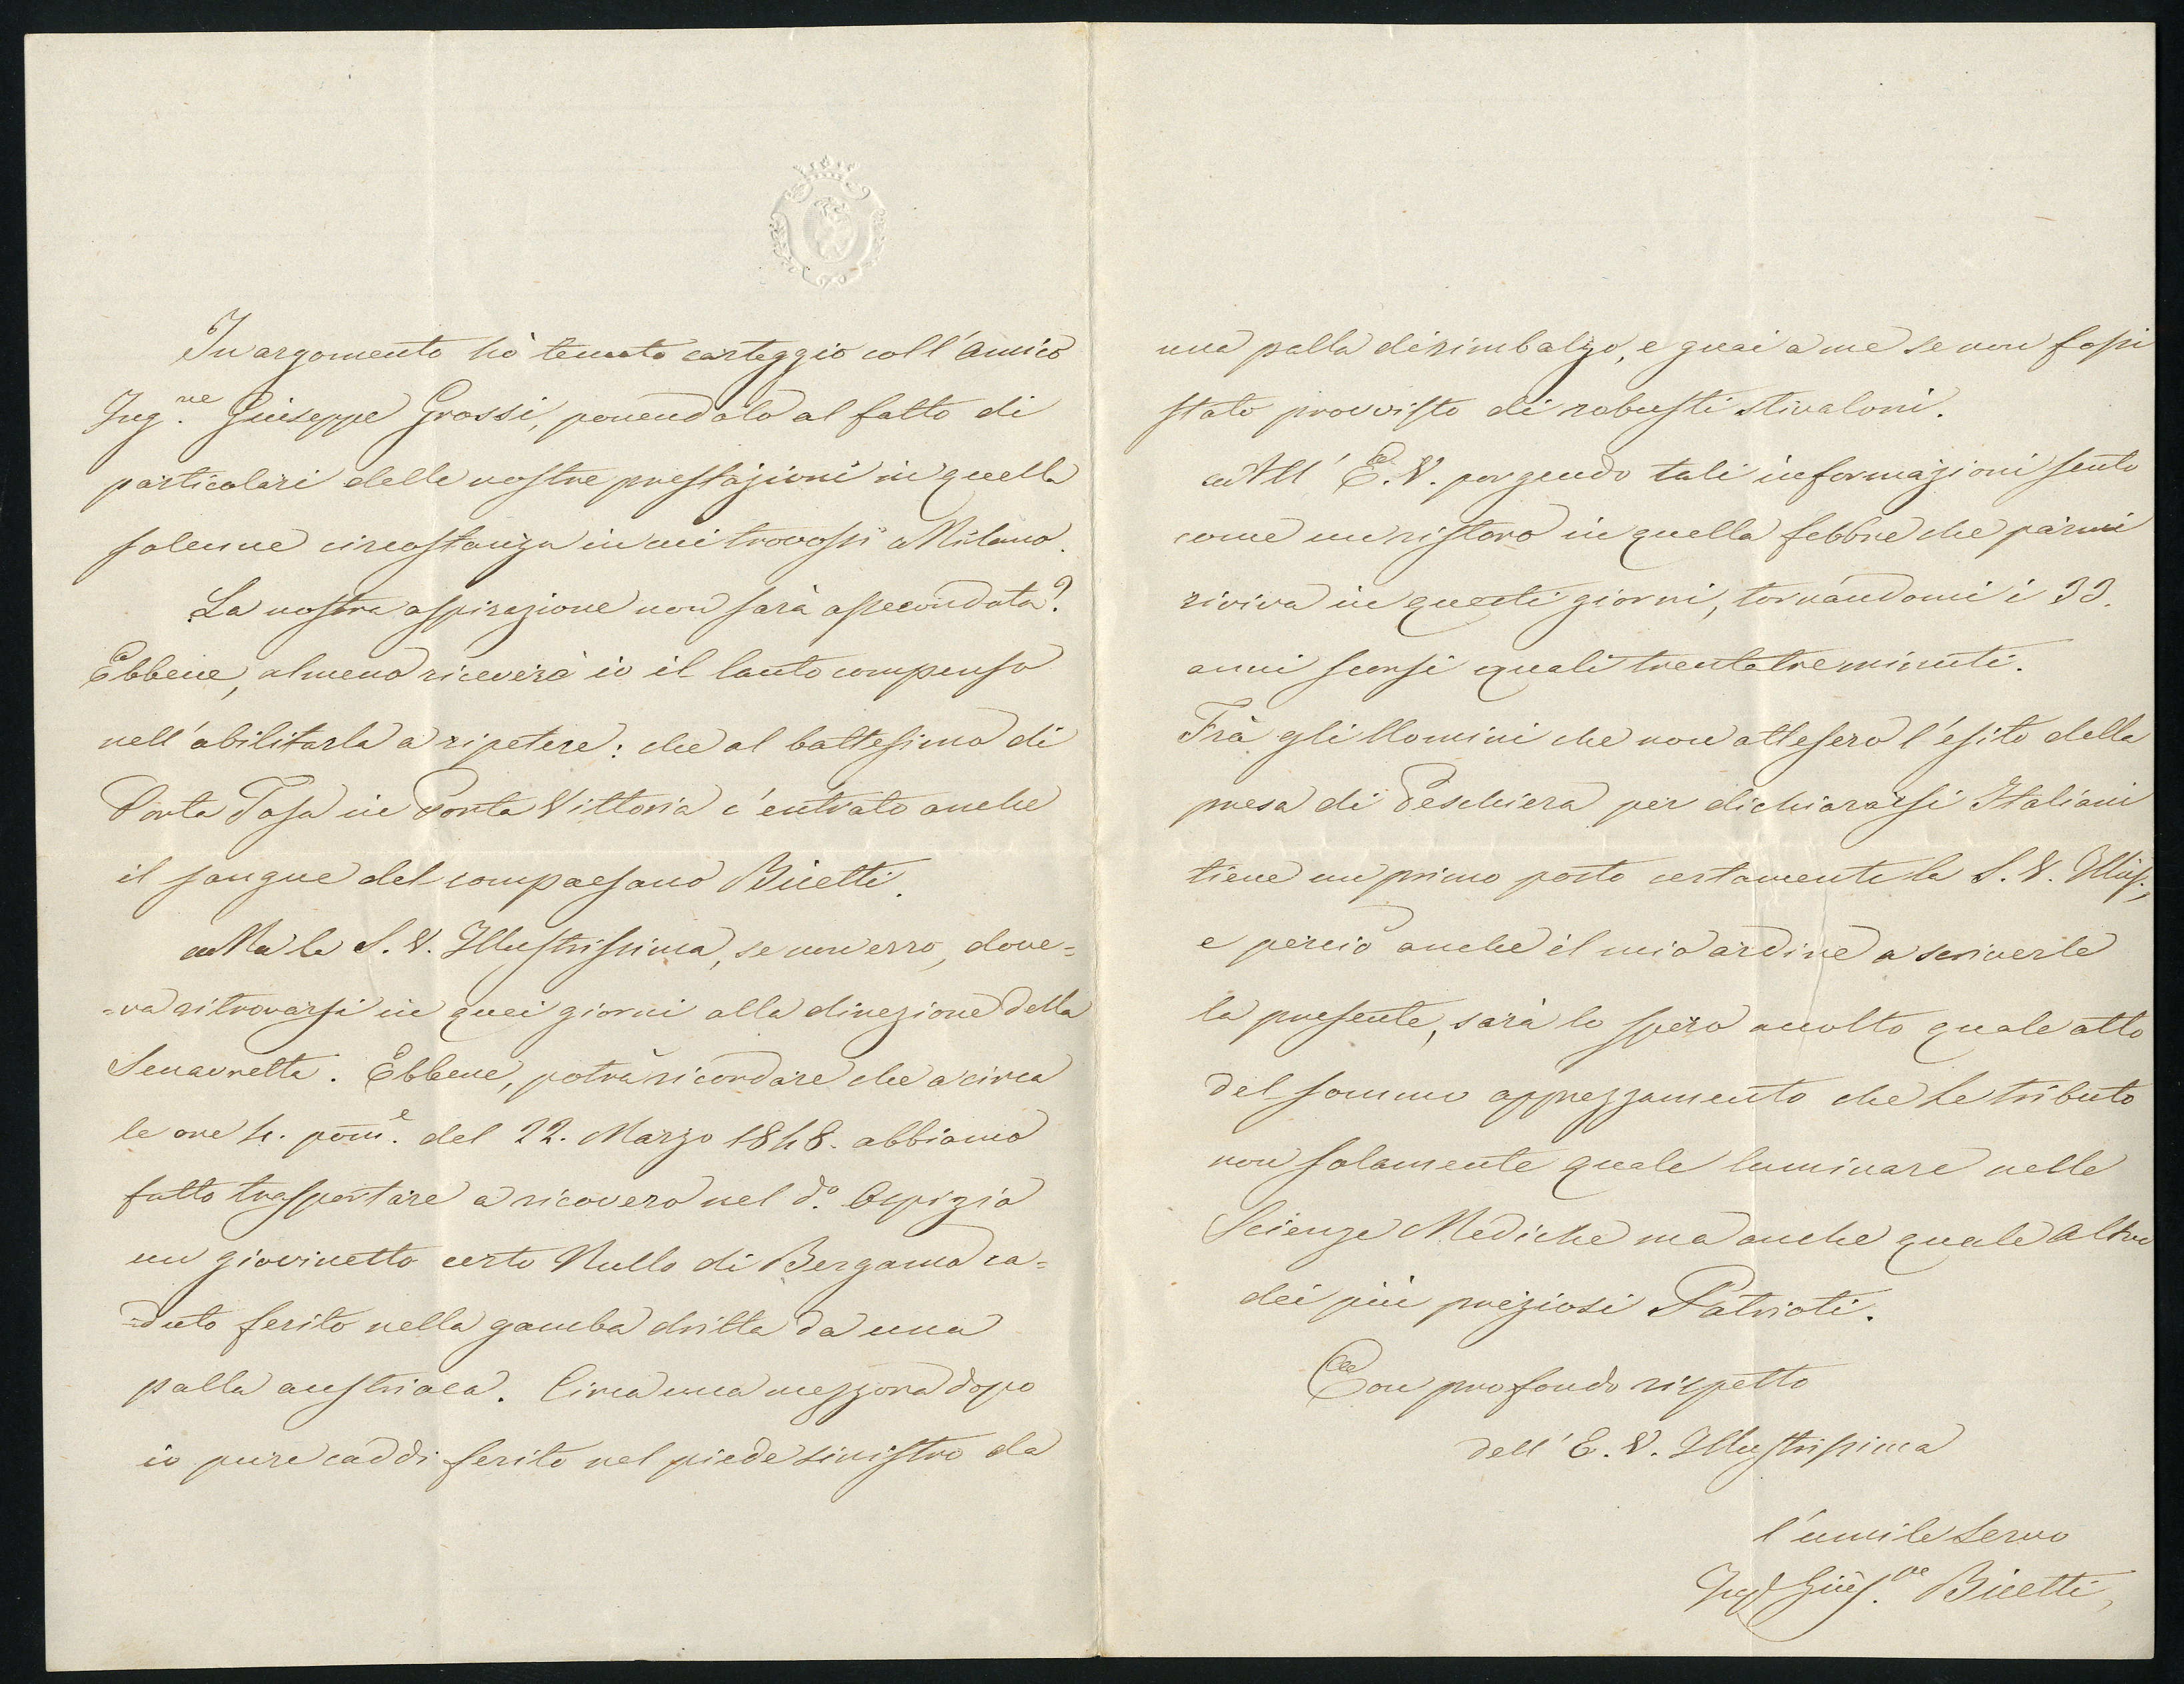 In argomento hò tenuto carteggio coll'Amico
Ing.re Giuseppe Grossi, ponendolo al fatto di
particolari delle nostre prestazioni in quella
solenne circostanza in cui trovossi a Milano.
La nostra aspirazione non sarà assecondata?
Ebbene, almeno riceverò io il lauto compenso
nell'abilitarla a ripetere: che al battesimo di
Porta Tosa in Porta Vittoria c'entrato anche
il sangue del compaesano Bicetti.
Ma la S. V. Illustrissima, se non erro, dove=
=va ritrovarsi in quei giorni alla direzione della
Senavretta. Ebbene, potrà ricordare che a circa
le ore 4. pom.e del 22. Marzo 1848. abbiamo
fatto trasportare a ricovero nel d.o Ospizio
un giovinetto certo Nullo di Bergamo ca=
=duto ferito nella gamba dritta da una
palla austriaca. Circa una mezzora dopo
io pure caddi ferito nel piede sinistro da
una palla di rimbalzo, e guai a me se non fossi
stato provvisto di robusti stivaloni.
All' E. V. porgendo tali informazioni sento
come un ristoro in quella febbre che parmi
riviva in questi giorni, tornandomi i 33.
anni scorsi quali trentatre minuti.
Frà gli Uomini che non attesero l'esito della
presa di Peschiera per dichiararsi Italiani
tiene un primo posto certamente la S. V. Illus.,
e perciò anche il mio ardire a scriverle
la presente, sarà lo spero accolto quale atto
del sommo apprezzamento che Le tributo
non solamente quale luminare nelle
Scienze Mediche ma anche quale Altro
dei più preziosi Patrioti.
Con profondo rispetto
dell' E. V. Illustrissima
l'umile Servo
Ing. Gius.pe Bicetti,